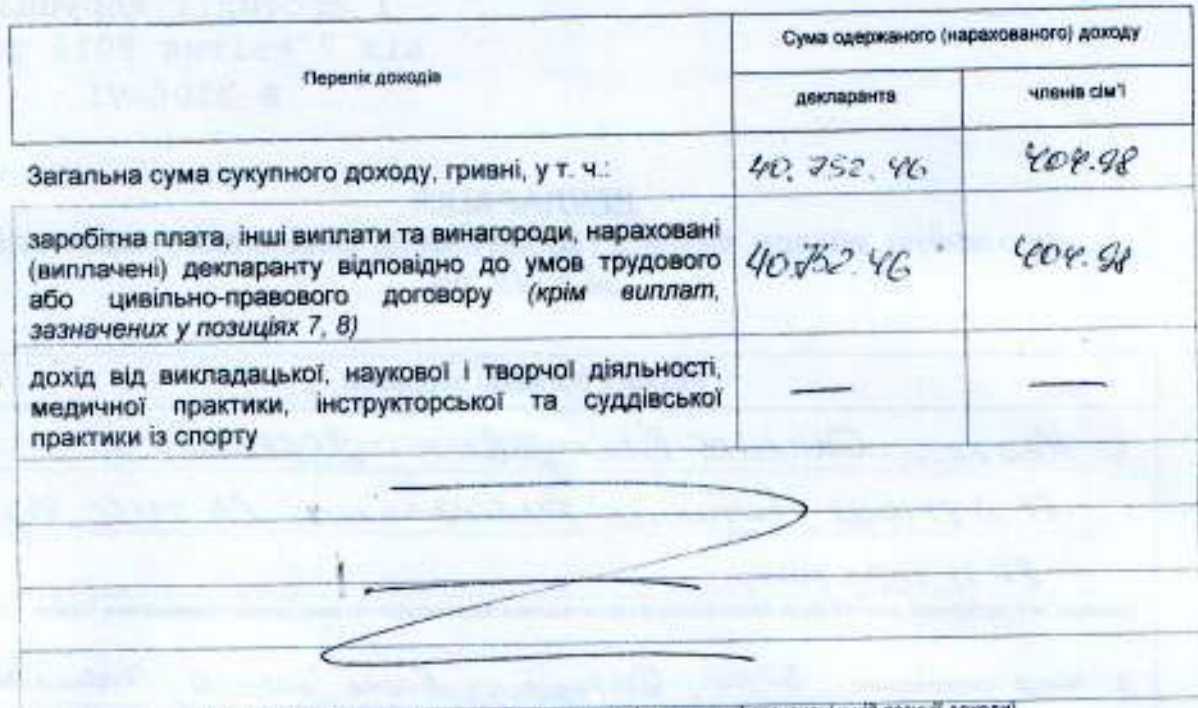 Перелік доходів
Сума одержаного (нарахованого) доходу
декларанта
членів сім'ї
Загальна сума сукупного доходу, гривні, у т. ч.:
40.752.46
404.98
заробітна плата, інші виплати та винагороди, нараховані
(виплачені) декларанту відповідно до умов трудового
або цивільно-правового договору (крім виплат,
зазначених у позиціях 7, 8)
40.752.46
404.98
дохід від викладацької, наукової і творчої діяльності,
медичної практики, інструкторської та суддівської
практики із спорту
—
—